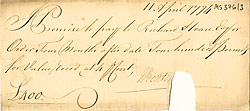 11 April 1774 MS 596/3
I Promise to pay to Richard Sloan Esq or
Order Four Months after date Four hundred Pounds
for Value received at
£400.